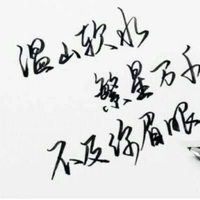 温山软水
繁星万千
不及你眉眼